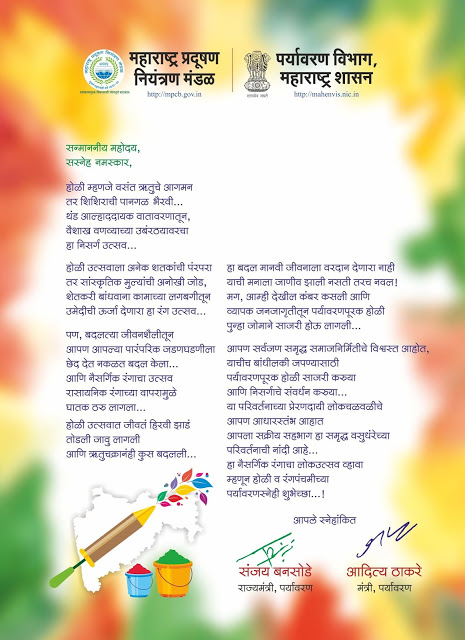 महाराष्ट्र प्रदूषण
नियंत्रण मंडळ
http://mpcb.gov.in
पर्यावरण विभाग,
महाराष्ट्र शासन
http://mahenvis.nic.in
सन्माननीय महोदय,
सस्नेह नमस्कार,
होळी म्हणजे वसंत ऋतुचे आगमन
तर शिशिराची पानगळ भैरवी...
थंड आल्हाददायक वातावरणातून,
वैशाख वणव्याच्या उबंरठयावरचा
हा निसर्ग उत्सव...
होळी उत्सवाला अनेक शतकांची परंपरा
तर सांस्कृतिक मुल्यांची अनोखी जोड,
शेतकरी बांधवाना कामाच्या लगबगीतून
उमेदीची ऊर्जा देणारा हा रंग उत्सव...
पण, बदलत्या जीवनशैलीतून
आपण आपल्या पारंपरिक जडणघडणीला
छेद देत नकळत बदल केला...
आणि नैसर्गिक रंगाचा उत्सव
रासायनिक रंगाच्या वापरामुळे
घातक ठरु लागला...
होळी उत्सवात जीवतं हिरवी झाडं
तोडली जावु लागली
आणि ऋतुचक्रानंही कुस बदलली...
हा बदल मानवी जीवनाला वरदान देणारा नाही
याची मनाला जाणीव झाली नसती तरच नवल!
मग, आम्ही देखील कंबर कसली आणि
व्यापक जनजागृतीतून पर्यावरणपूरक होळी
पुन्हा जोमाने साजरी होऊ लागली...
आपण सर्वजण समृद्ध समाजनिर्मितीचे विश्वस्त आहोत,
याचीच बांधीलकी जपण्यासाठी
पर्यावरणपूरक होळी साजरी करुया
आणि निसर्गाचे संवर्धन करुया...
या परिवर्तनाच्या प्रेरणदायी लोकचळवळीचे
आपण आधारस्तंभ आहात
आपला सक्रीय सहभाग हा समृद्ध वसुंधरेच्या
परिवर्तनाची नांदी आहे...
हा नैसर्गिक रंगाचा लोकउत्सव व्हावा
म्हणून होळी व रंगपंचमीच्या
पर्यावरणस्नेही शुभेच्छा...!
आपले स्नेहांकित
संजय बनसोडे
राज्यमंत्री, पर्यावरण
आदित्य ठाकरे
मंत्री, पर्यावरण